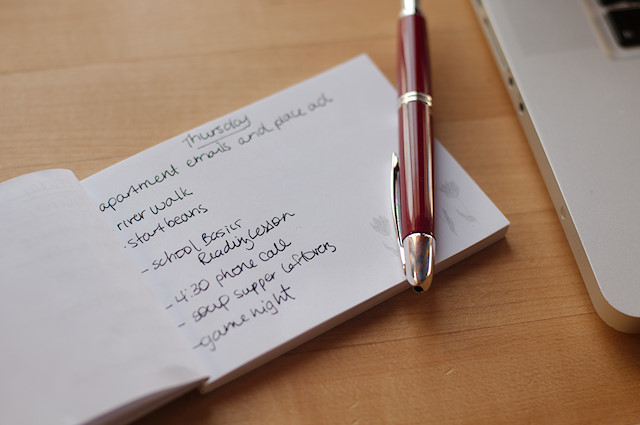 Thursday
apartment emails and place ad
river walk
- start beans
- school Basics
Reading Lesson
- 4:30 phone call
- soup supper leftovers
- game night